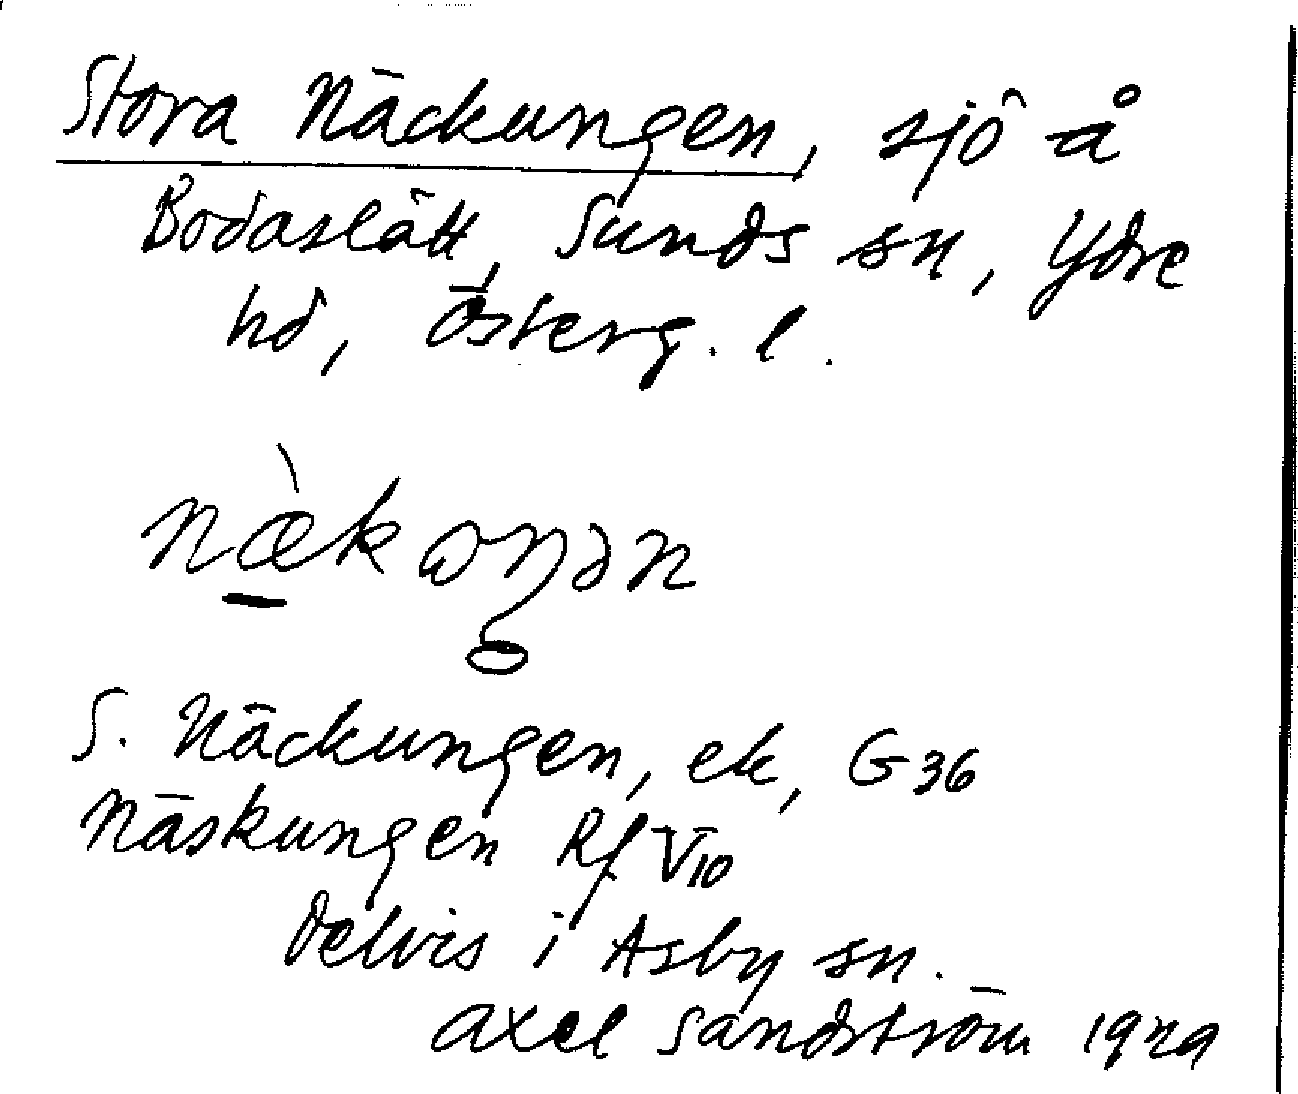 Stora Näckungen, sjö å
Bodaslätt, Sunds sn, Ydre
hd, Österg. l.
næ̀kωŋən
S. Näckungen, ek, G36
Näskungen Rf V10
Delvis i Asby sn.
Axel Sandström 1929